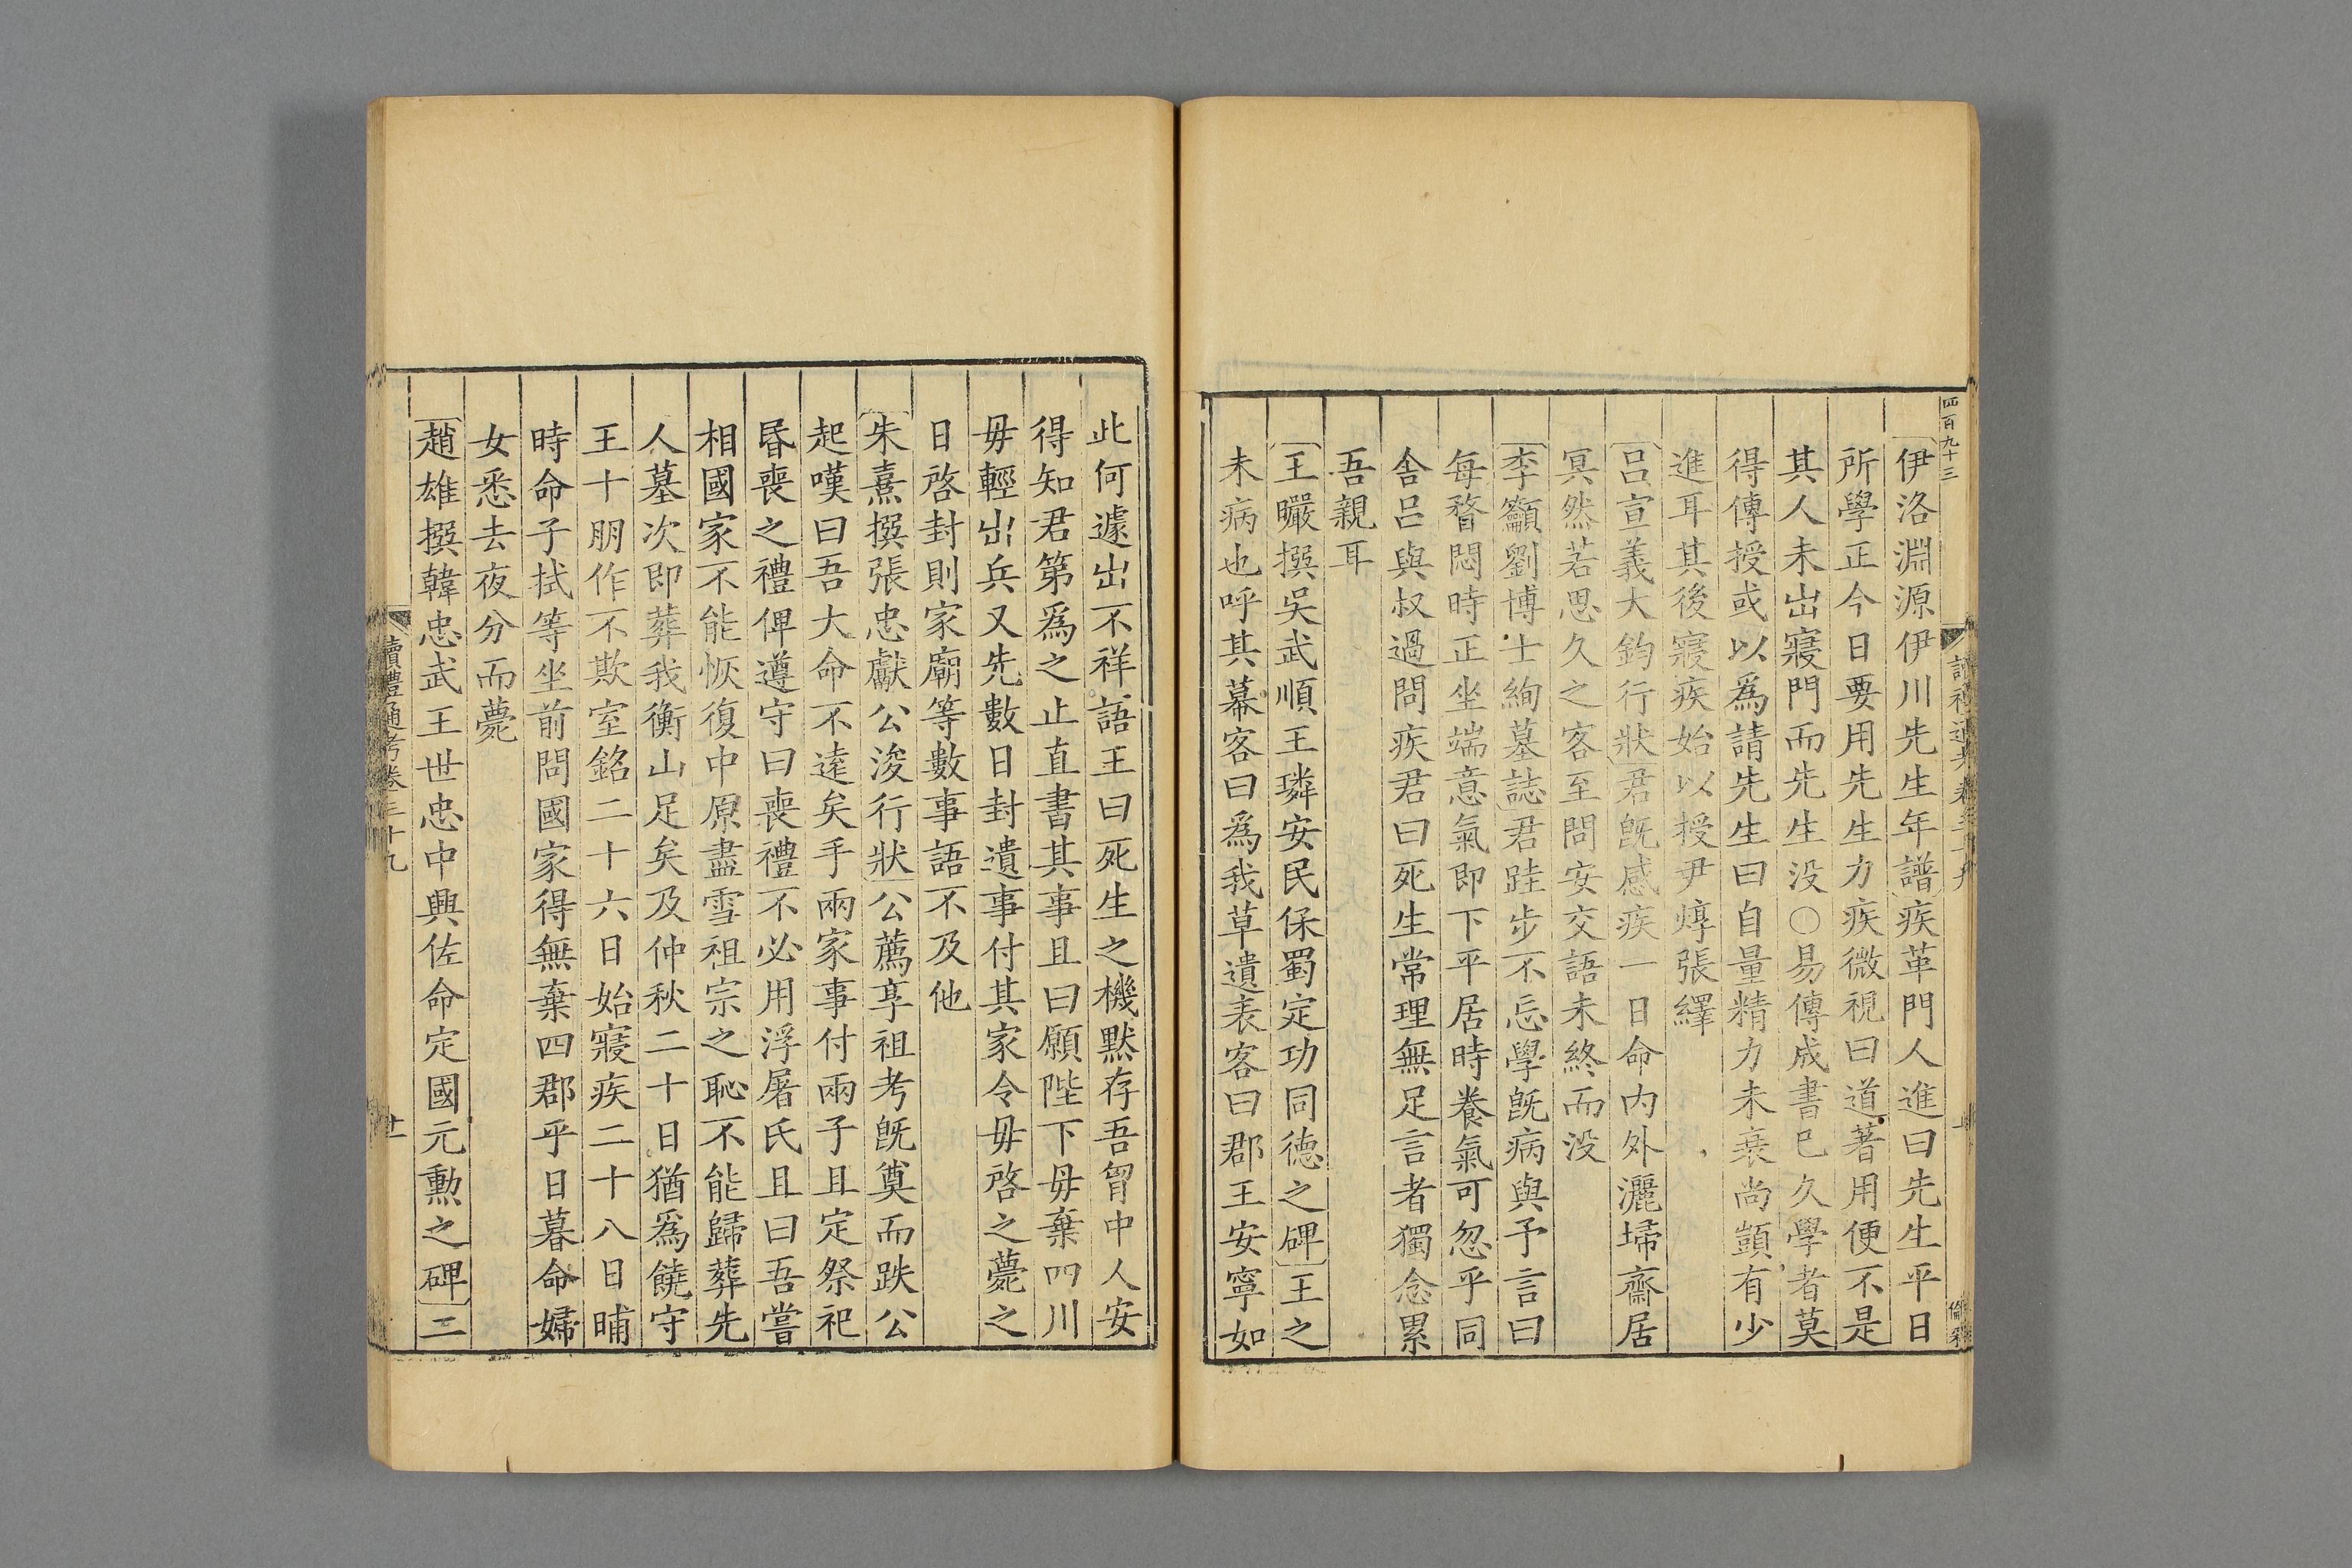 四百九十三
伊洛淵源伊川先生年譜疾革門人進曰先生平日
所學正今日要用先生力疾微視曰道著用便不是
其人未出寢門而先生没〇易傳成書已久學者莫
得傳授或以爲請先生曰自量精力未衰尚顗有少
進耳其後寢疾始以授尹焞張繹
呂宣義大鈞行狀君旣感疾一日命内外灑埽齋居
冥然若思久之客至問安交語未終而没
李籲劉博士絢墓誌君跬步不忘學旣病與予言曰
每瞀悶時正坐端意氣即下平居時養氣可忽乎同
舍呂與叔過問疾君曰死生常理無足言者獨念累
吾親耳
王曮撰吳武順王璘安民保蜀定功同德之碑王之
未病也呼其幕客曰爲我草遺表客曰郡王安寧如
此何遽出不祥語王曰死生之機默存吾胷中人安
得知君第爲之止直書其事且曰願陛下毋棄四川
毋輕出兵又先數日封遺事付其家令毋啓之薨之
日啓封則家廟等數事語不及他
朱熹撰張忠獻公浚行狀公薦享祖考旣奠而跌公
起嘆曰吾大命不逺矣手兩家事付兩子且定祭祀
昬喪之禮俾遵守曰喪禮不必用浮屠氏且曰吾嘗
相國家不能恢復中原盡雪祖宗之恥不能歸葬先
人墓次即葬我衡山足矣及仲秋二十日猶爲饒守
王十朋作不欺室銘二十六日始寢疾二十八日晡
時命子拭等坐前問國家得無棄四郡乎日暮命婦
女悉去夜分而薨
趙雄撰韓忠武王世忠中興佐命定國元勳之碑二
讀禮通考卷三十九